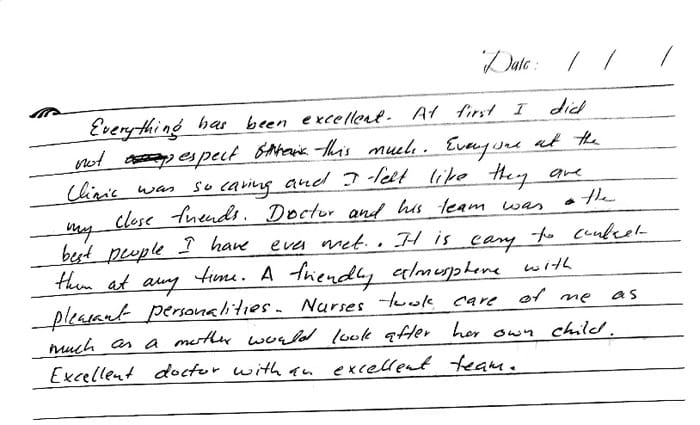 Date: / / /
Everything has been excellent. At first I did
not espect this much. Everyone at the
Clinic was so caring and I felt like they are
my close friends. Doctor and his team was the
best people I have ever met. It is easy to contact
them at any time. A friendly atmosphere with
pleasant personalities. Nurses took care of me as
much as a mother would look after her own child.
Excellent doctor with an excellent team.